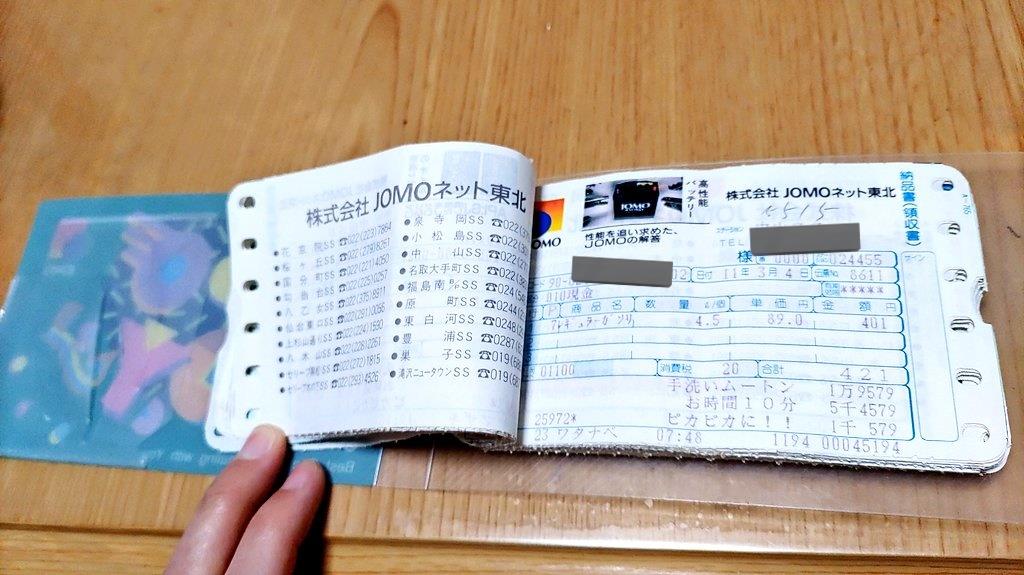 株式会社 JOMOネット東北
●花京院SS ☎022(223)7864
●桜ヶ丘SS ☎022(279)8261
●国分町SS ☎022(221)4050
●勾当台SS ☎022(225)0257
●八乙女SS ☎022(375)8911
●仙台東口SS ☎022(291)0056
●上杉山通りSS ☎022(224)1590
●八木山SS ☎022(228)2261
●セリーブ黒松SS ☎022(272)1815
SS ☎022(293)4526
●泉寺岡SS ☎022
●小松島SS ☎022
●中山SS ☎022
●名取大手町SS ☎022
●福島南 SS ☎024
●原町SS ☎0244
●東白河SS ☎0248
●豊浦SS ☎0287
●巣子SS ☎019
●滝沢ニュータウンSS ☎019
JOMO
高性能バッテリー
性能を追い求めた、
JOMOの解答
株式会社 JOMOネット東北
4515
ステーション
TEL
納品書(領収書)
様
0000
024455
サイン
02 日付 11年 3月 4日 伝票No 8611
*****
010現金
商品名 数量 単価 円 金額 円
レギュラーガソリ 4.5 89.0 401
01100 消費税 20 合計 421
手洗いムートン 1万9579
お時間10分 5千4579
ピカピカに!! 1千 579
25972*
23 ワタナベ 07:48 1194 00045194